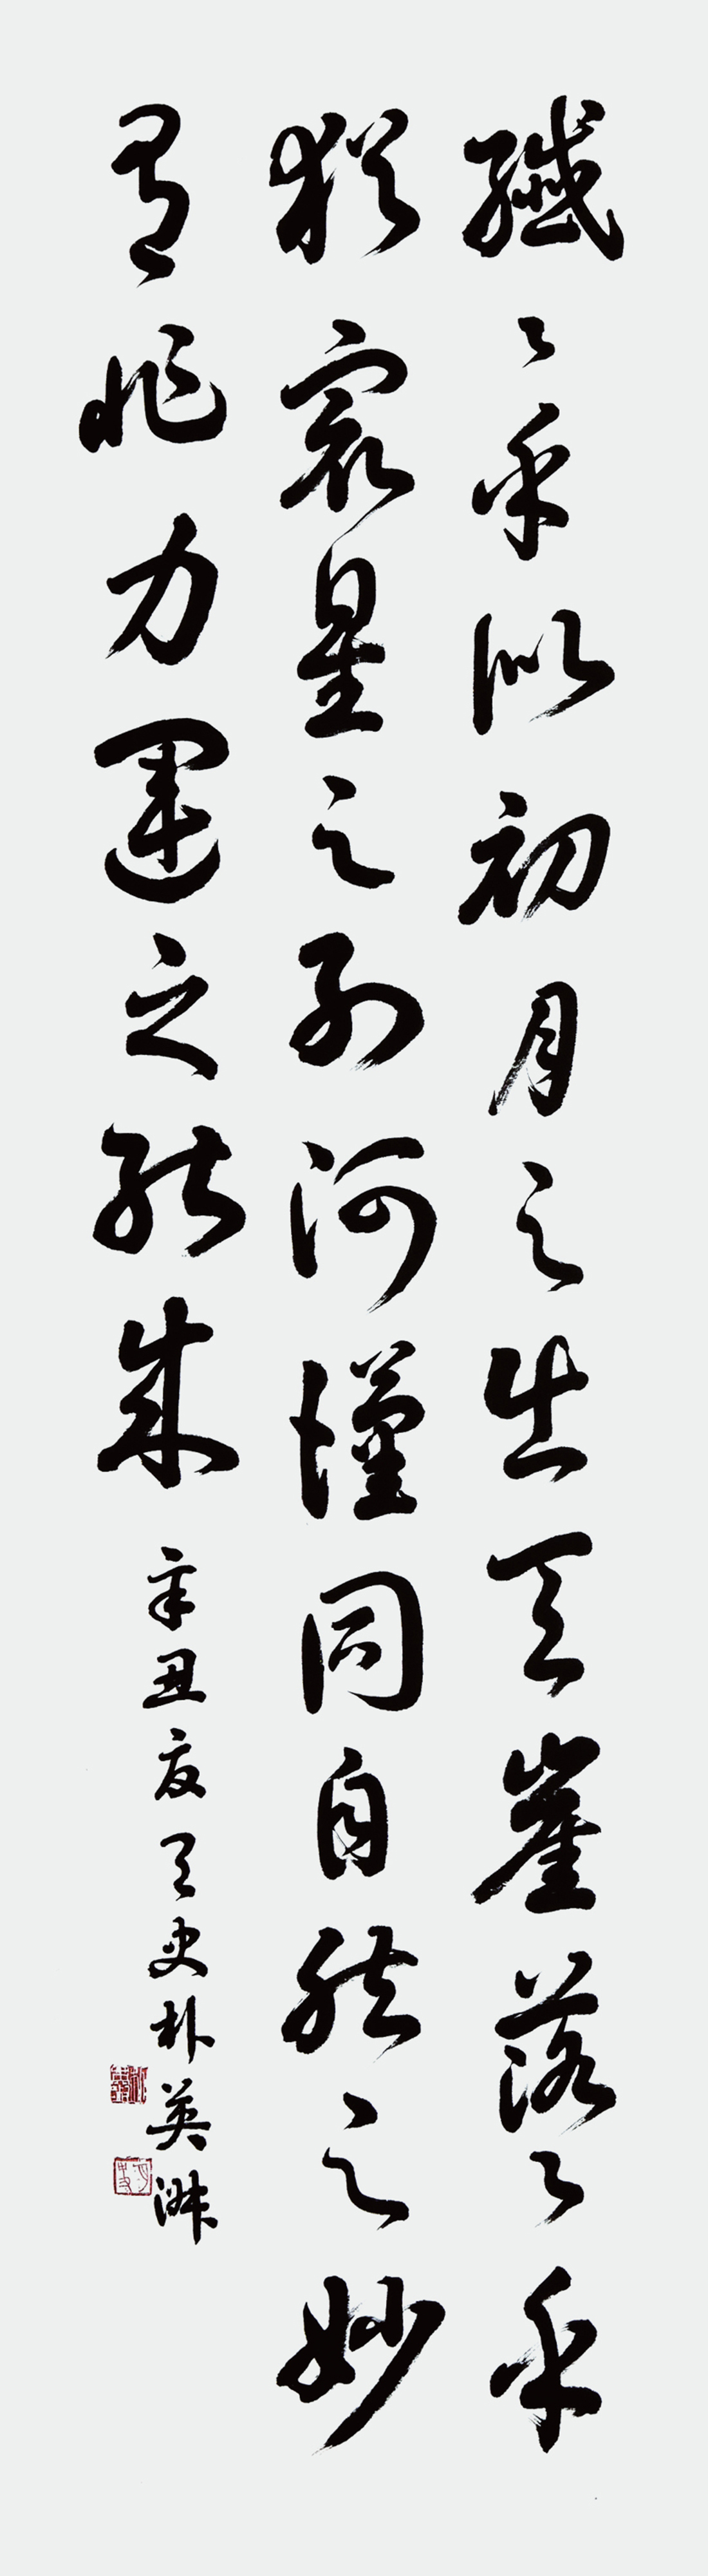 纖〻乎似初月之出天崖落〻乎
猶衆星之列河漢同自然之妙
有非力運之能成 辛丑夏 天史 朴英淋